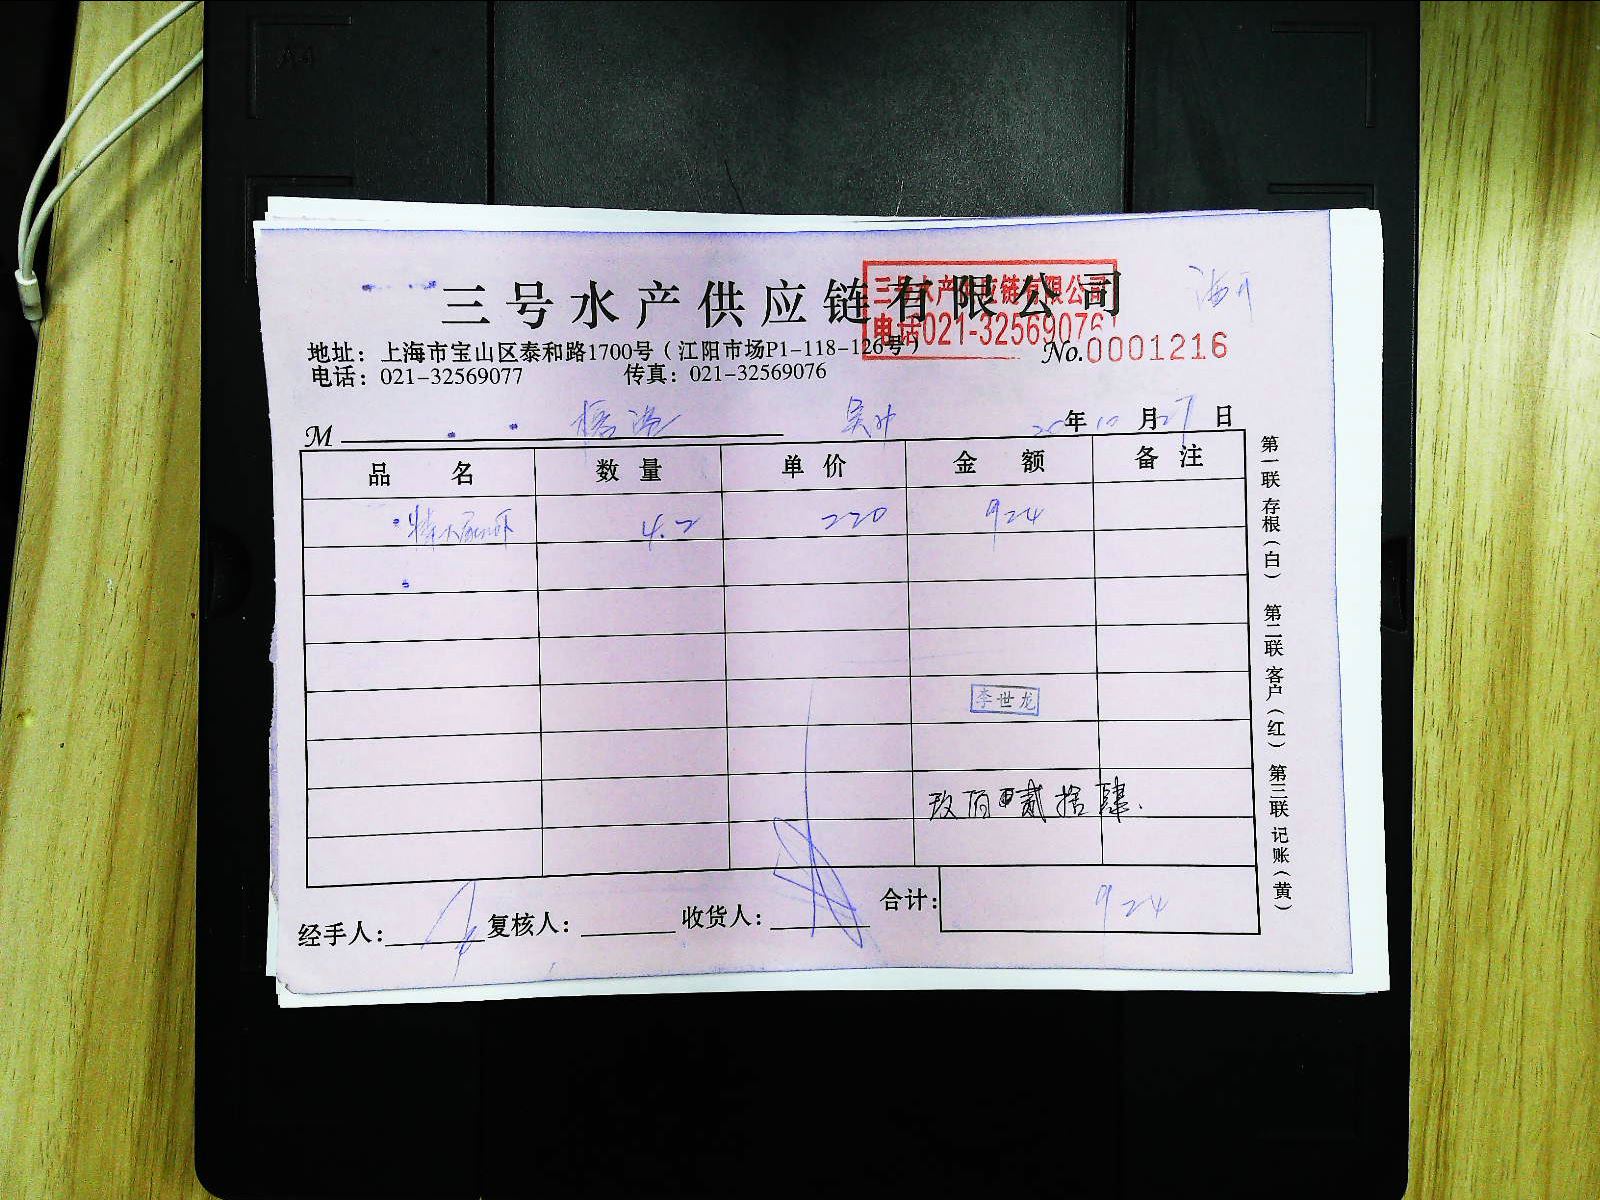 三号水产供应链有限公司
三号水产供应链有限公司
电话021-32569076
地址：上海市宝山区泰和路1700号（江阳市场P1-118-126号）
No.0001216
电话：021-32569077 传真：021-32569076
M 年10月27日
品名 数量 单价 金额 备注
4.2 220 924
李世龙
玖佰贰拾肆.
合计：924
经手人： 复核人： 收货人：
第一联 存根（白） 第二联 客户（红） 第三联 记账（黄）
A4